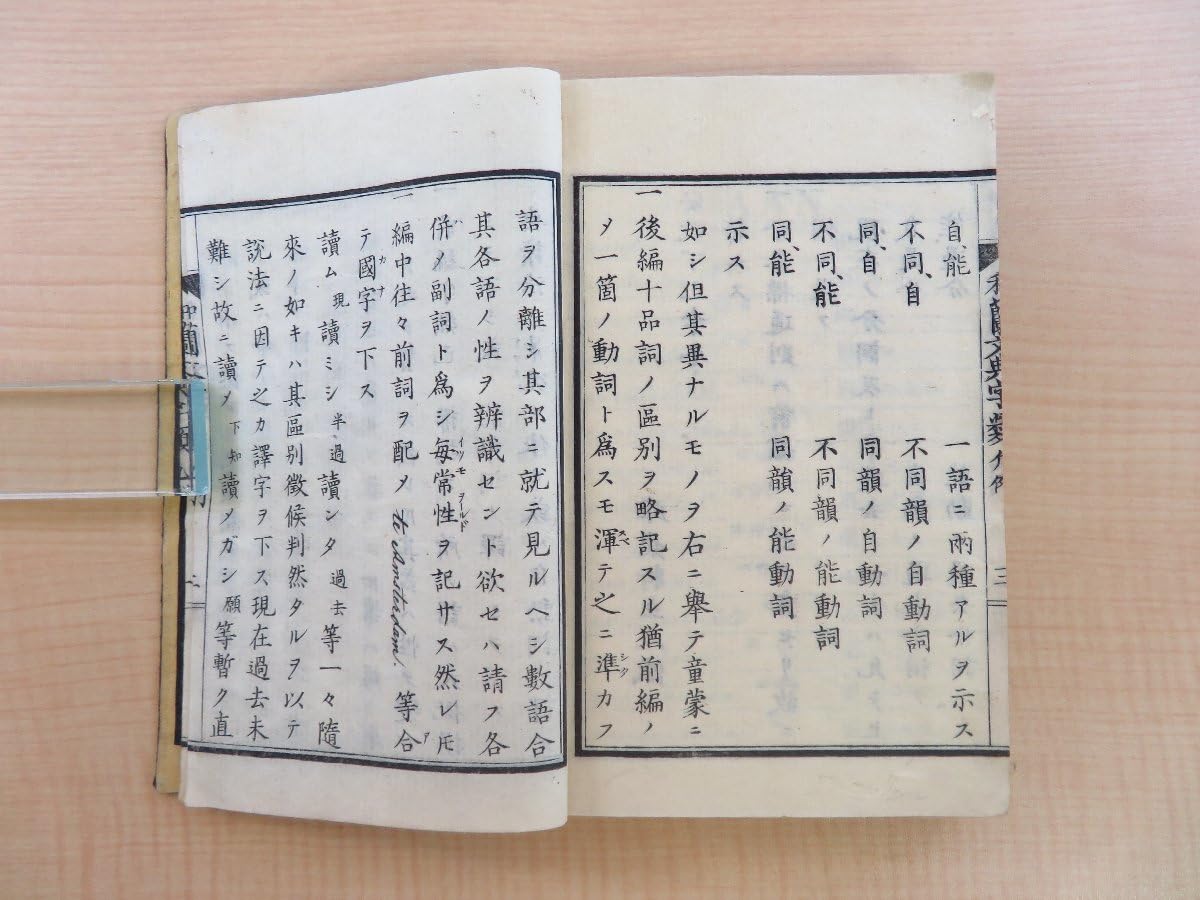 自、能分 一語ニ兩種アルヲ示ス
不同、自 不同韻ノ自動詞
同、自 同韻ノ自動詞
不同、能 不同韻ノ能動詞
同、能 同韻ノ能動詞
示ス
如シ但其異ナルモノヲ右ニ舉テ童蒙ニ
一後編十品詞ノ區別ヲ略記スル猶前編ノ
メ一箇ノ動詞ト爲スモ渾テ之ニ準カフ
語ヲ分離シ其部ニ就テ見ルヘシ數語合
其各語ノ性ヲ辨識セント欲セハ請フ各
併ノ副詞ト爲シ毎常性ヲ記サス然レ𪜈
一編中往々前詞ヲ配メ te Amsterdam. 等合
テ國字ヲ下ス
讀ム現讀ミシ半過讀ンタ過去等一々隨
來ノ如キハ其區別徵候判然タルヲ以テ
説法ニ因テ之カ譯字ヲ下ス現在過去未
難シ故ニ讀メ下知讀メガシ願等暫ク直